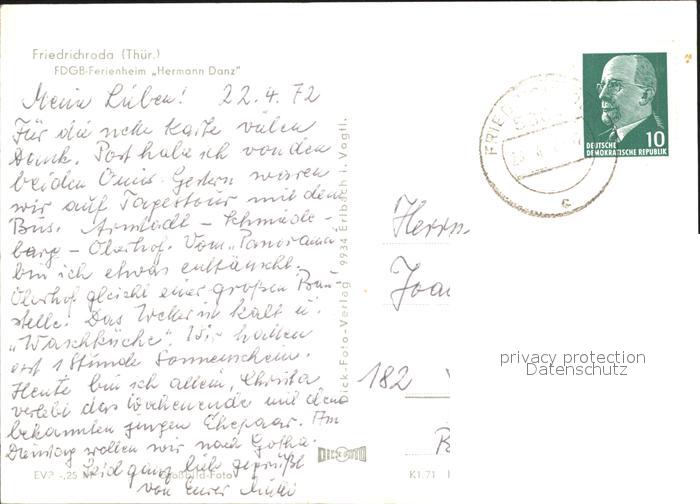 Friedrichroda (Thür.)
FDGB-Ferienheim „Hermann Danz"
Meine Lieben! 22.4.72
Für die nette Karte vielen
Dank. Post habe ich von den
beiden Omis. Gestern waren
wir auf Tagestour mit dem
Bus. Arnstadt - Schmiede-
 - Oberhof. Vom „Panorama"
bin ich etwas enttäuscht.
Oberhof gleicht einer großen Bau-
stelle. Das Wetter ist kalt u.
„Waschküche". Wir hatten
erst 1 Stunde Sonnenschein.
Heute bin ich allein, Christa
verlebt das Wochenende mit einem
bekannten jungen Ehepaar. Am
Dienstag wollen wir nach Gotha.
Seid ganz lieb gegrüßt
von Eurer Mutti
EVP -,25
Foto
K1.71
Bick-Foto-Verlag 9934 Erlbach i. Vogtl.
FRIED
10
DEUTSCHE
DEMOKRATISCHE REPUBLIK
Herrn
Joa
182
privacy protection
Datenschutz